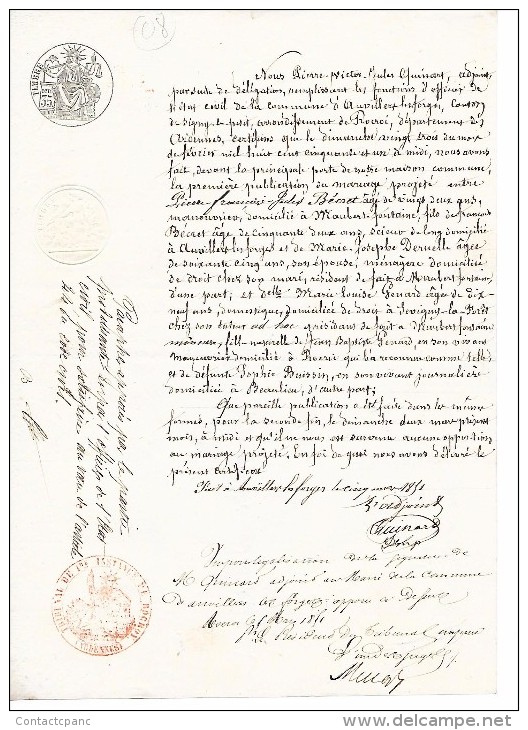 08
TIMBRE
Nous Pierre Victor Jules Guinart, adjoint
par suite de délégation, remplissant les fonctions d'officier de
l'état civil de la commune d'Auvillers les forges, canton
de Signy-le-petit, arrondissement de Rocroi, département des
Ardennes, certifions que le dimanche vingt trois du mois
de février mil huit cent cinquante et un à midi, nous avons
fait, devant la principale porte de notre maison commune,
la première publication du mariage projeté entre
Pierre françois Jules Bécret âgé de vingt deux ans,
manouvrier, domicilié à Maubert-fontaine, fils de françois
Bécret âgé de cinquante deux ans, scieur de long domicilié
à Auvillers les forges et de Marie Josephe Deruelle âgée
de soixante cinq ans, son épouse, ménagère domiciliée
de droit chez son mari, résidant de fait à Maubert fontaine
d'une part; et delle Marie Louise Genard âgée de dix
neuf ans, domestique, domiciliée de droit à Sevigny-la-Forêt
chez son tuteur ad hoc résidant de fait à Maubert fontaine
mineure, fille naturelle de Jean Baptiste Genard, en son vivant
manouvrier domicilié à Rocroi qui l'a reconnue comme telle
et de défunte Sophie Buisson, en son vivant journalière
domiciliée à Beaulieu, d'autre part;
Que pareille publication a été faite dans la même
forme, pour la seconde fois, le dimanche deux mars présent
mois, à midi et qu'il ne nous est survenu aucune opposition
au mariage projeté. En foi de quoi nous avons délivré le
présent certificat
fait à Auvillers les forges le cinq mars 1851
L'adjoint
Guinart
Vu pour légalisation de la signature de
M Guinart adjoint au Maire de la Commune
d'auvillers les forges apposée ci Dessus
Rocroi le mars 1851
Le Président du Tribunal
TRIBUNAL DE 1RE INSTANCE DE ROCROI
(ARDENNES)
l'officier de l'état
civil pour satisfaire au vœu de l'article
du code civil.
Contactcpanc
www.delcampe.net